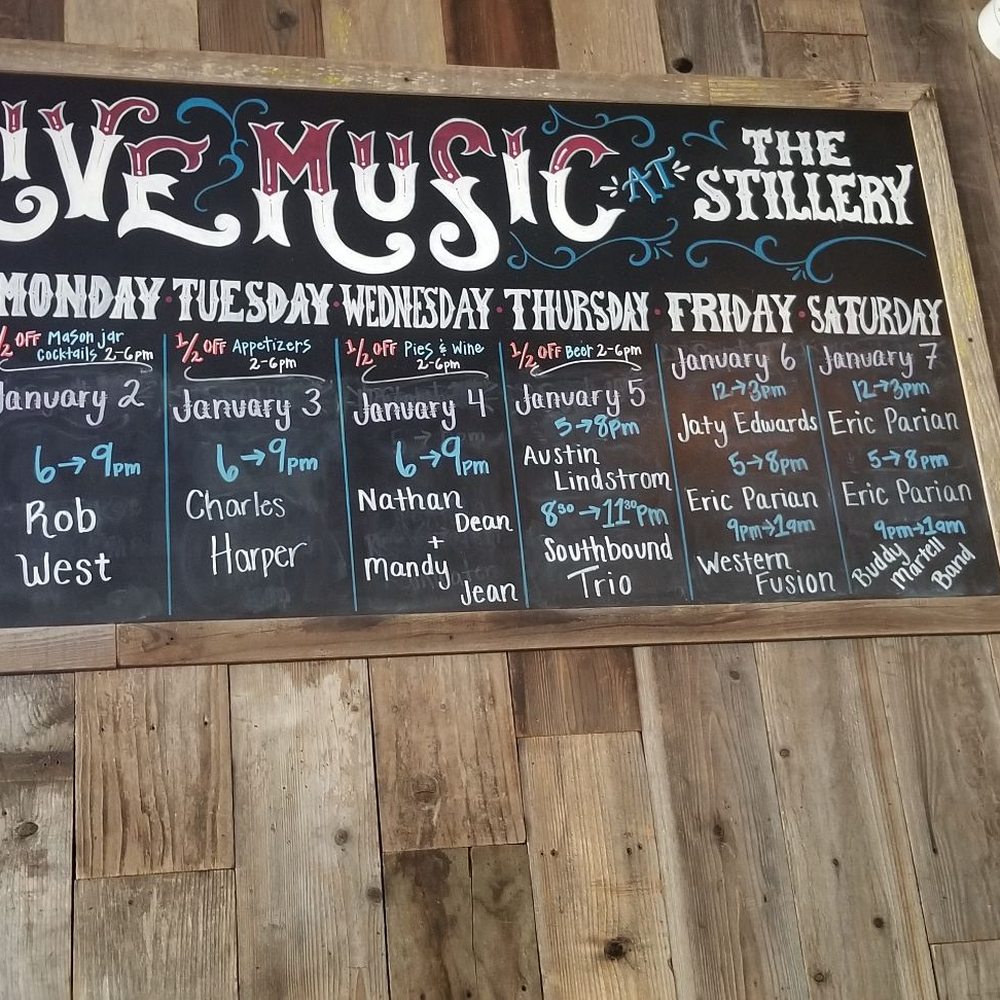 LIVE MUSIC AT THE STILLERY
MONDAY · TUESDAY · WEDNESDAY · THURSDAY · FRIDAY · SATURDAY
1/2 OFF Mason jar
Cocktails 2-6pm
January 2
6→9pm
Rob
West
1/2 OFF Appetizers
2-6pm
January 3
6→9pm
Charles
Harper
1/2 OFF Pies & Wine
2-6pm
January 4
6→9pm
Nathan
Dean
+
Mandy
Jean
1/2 OFF Beer 2-6pm
January 5
5→8pm
Austin
Lindstrom
8³⁰→11³⁰pm
Southbound
Trio
January 6
12→3pm
Jaty Edwards
5→8pm
Eric Parian
9pm→1am
Western
Fusion
January 7
12→3pm
Eric Parian
5→8pm
Eric Parian
9pm→1am
Buddy
Martell
Band